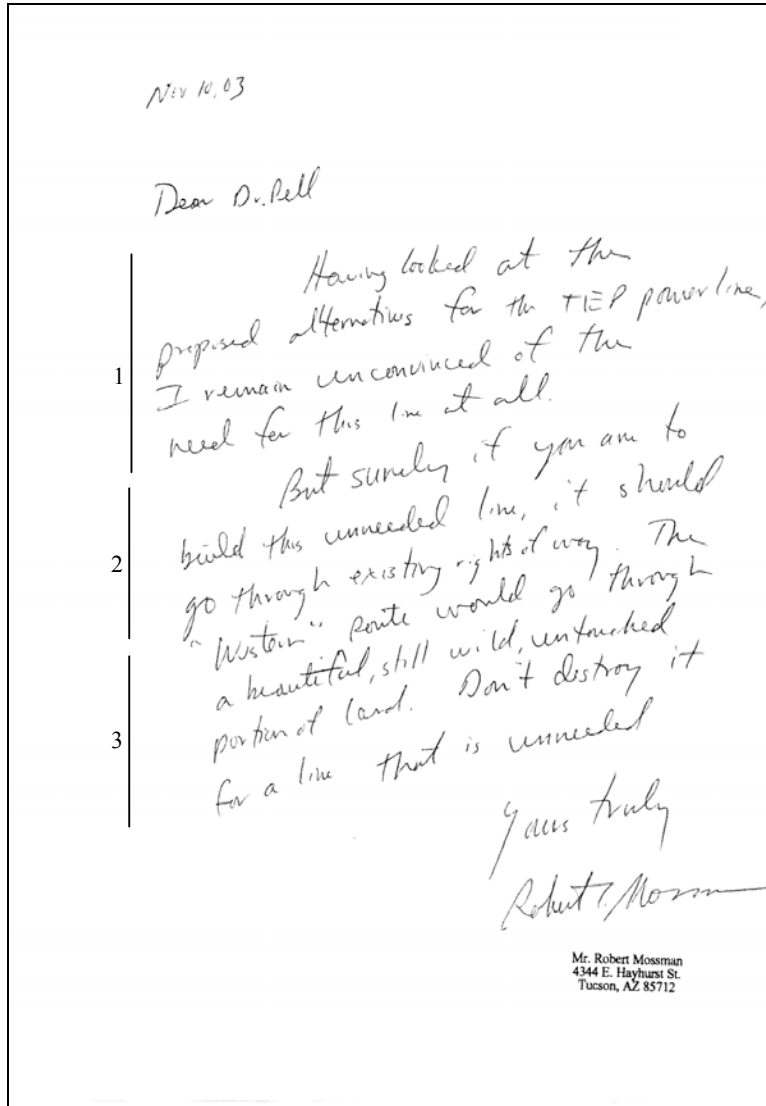 Nov 10, 03
Dear Dr. Pell
Having looked at the
proposed alternatives for the TEP powerline,
1
I remain unconvinced of the
need for this line at all.
But surely if you are to
build this unneeded line, it should
2
go through existing rights of way. The
"Western" route would go through
a beautiful, still wild, untouched
portion of land. Don't destroy it
3
for a line that is unneeded
Yours truly
Robert Mossman
Mr. Robert Mossman
4344 E. Hayhurst St.
Tucson, AZ 85712